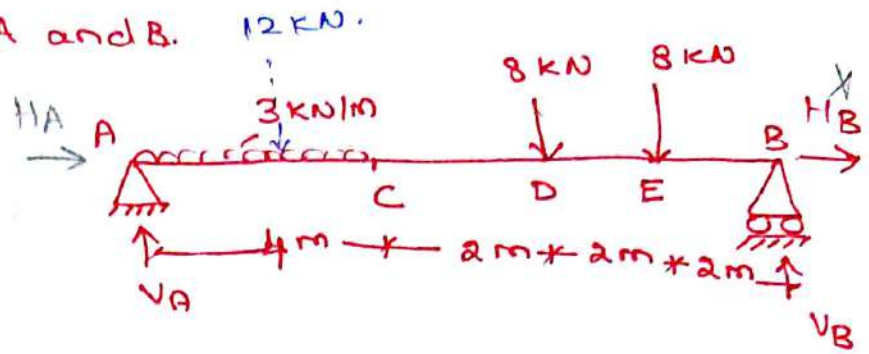 A and B. 12 KN.
8 KN 8 KN
HA A 3 KN/m B HB X
C D E
4 m 2 m 2 m 2 m
VA VB